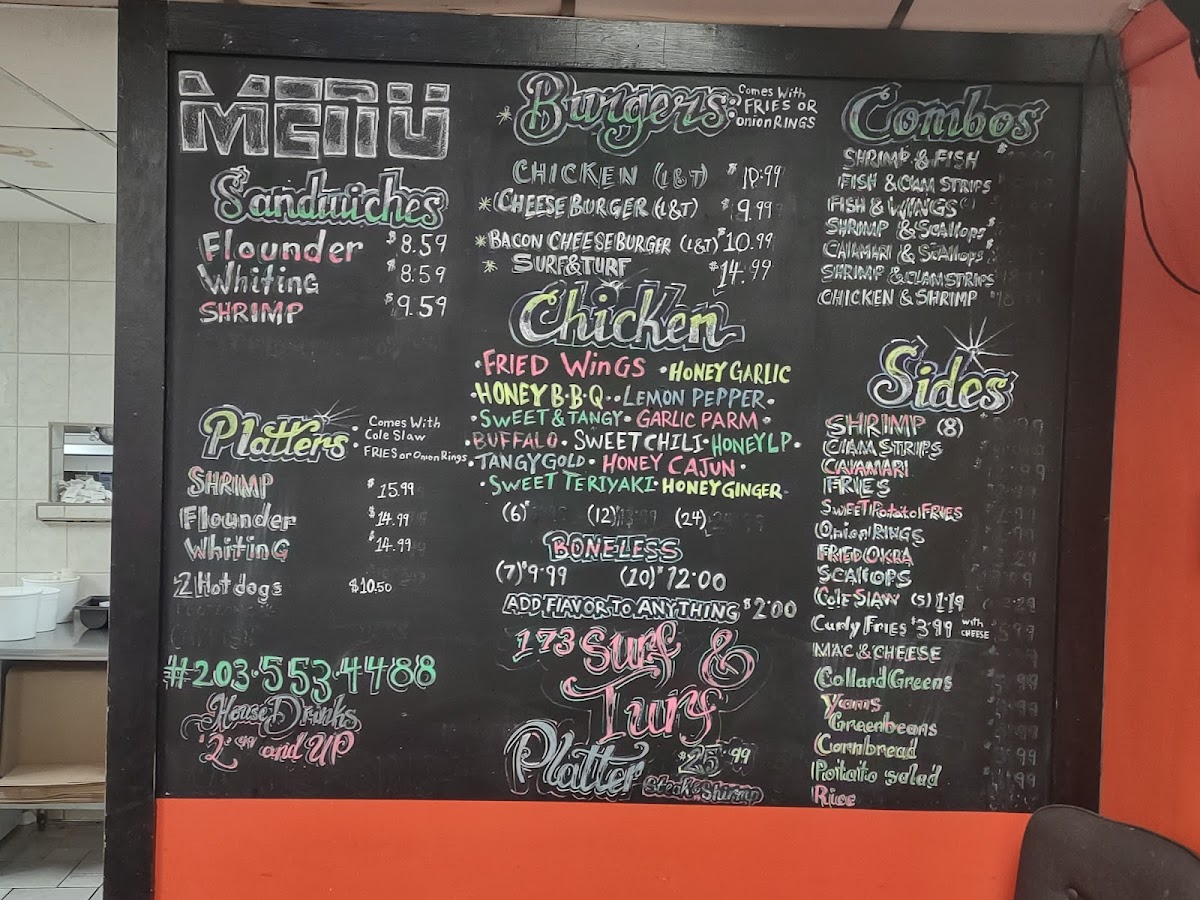 MENU
Sandwiches
Flounder $8.59
Whiting $8.59
SHRIMP $9.59
Platters: Comes With
Cole Slaw
FRIES or Onion Rings
SHRIMP $15.99
Flounder $14.99
Whiting $14.99
2 Hot dogs $10.50
#203.553.4488
House Drinks
$2.99 and UP
* Burgers: Comes With
FRIES OR
onion RINGS
CHICKEN (L&T) $10.99
* CHEESE BURGER (L&T) $9.99
* BACON CHEESE BURGER (L&T) $10.99
* SURF&TURF $14.99
Chicken
• FRIED WINGS • HONEY GARLIC
• HONEY B•B•Q • • LEMON PEPPER •
• SWEET & TANGY • GARLIC PARM •
• BUFFALO • SWEET CHILI • HONEY LP •
• TANGY GOLD • HONEY CAJUN •
• SWEET TERIYAKI • HONEY GINGER
(6) (12) (24)
BONELESS
(7) $9.99 (10) $12.00
ADD FLAVOR TO ANYTHING $2.00
173 Surf &
Turf
Platter $25.99
Steak & Shrimp
Combos
SHRIMP & FISH
FISH & CLAM STRIPS
FISH & WINGS
SHRIMP & Scallops
CALAMARI & Scallops
SHRIMP & CLAM STRIPS
CHICKEN & SHRIMP
Sides
SHRIMP (8)
CLAM STRIPS
CALAMARI
FRIES
SWEET Potato FRIES
Onion RINGS
FRIED OKRA
SCALLOPS
Cole SLAW (S) 1.19
Curly Fries $3.99 with CHEESE
MAC & CHEESE
Collard Greens
Yams
Greenbeans
Cornbread
Potato salad
Rice